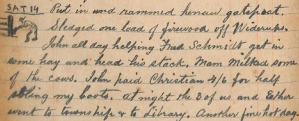 SAT 14 Put in and rammed henau gatepost.
Sledged one load of firewood off Widerups.
John all day helping Fred Schmidt get in
some hay and head his stack. Mam Milked some
of the cows. John paid Christian 4/6 for half
soling my boots. at night the 3 of us and Esther
went to township & to Library. Another fine hot day